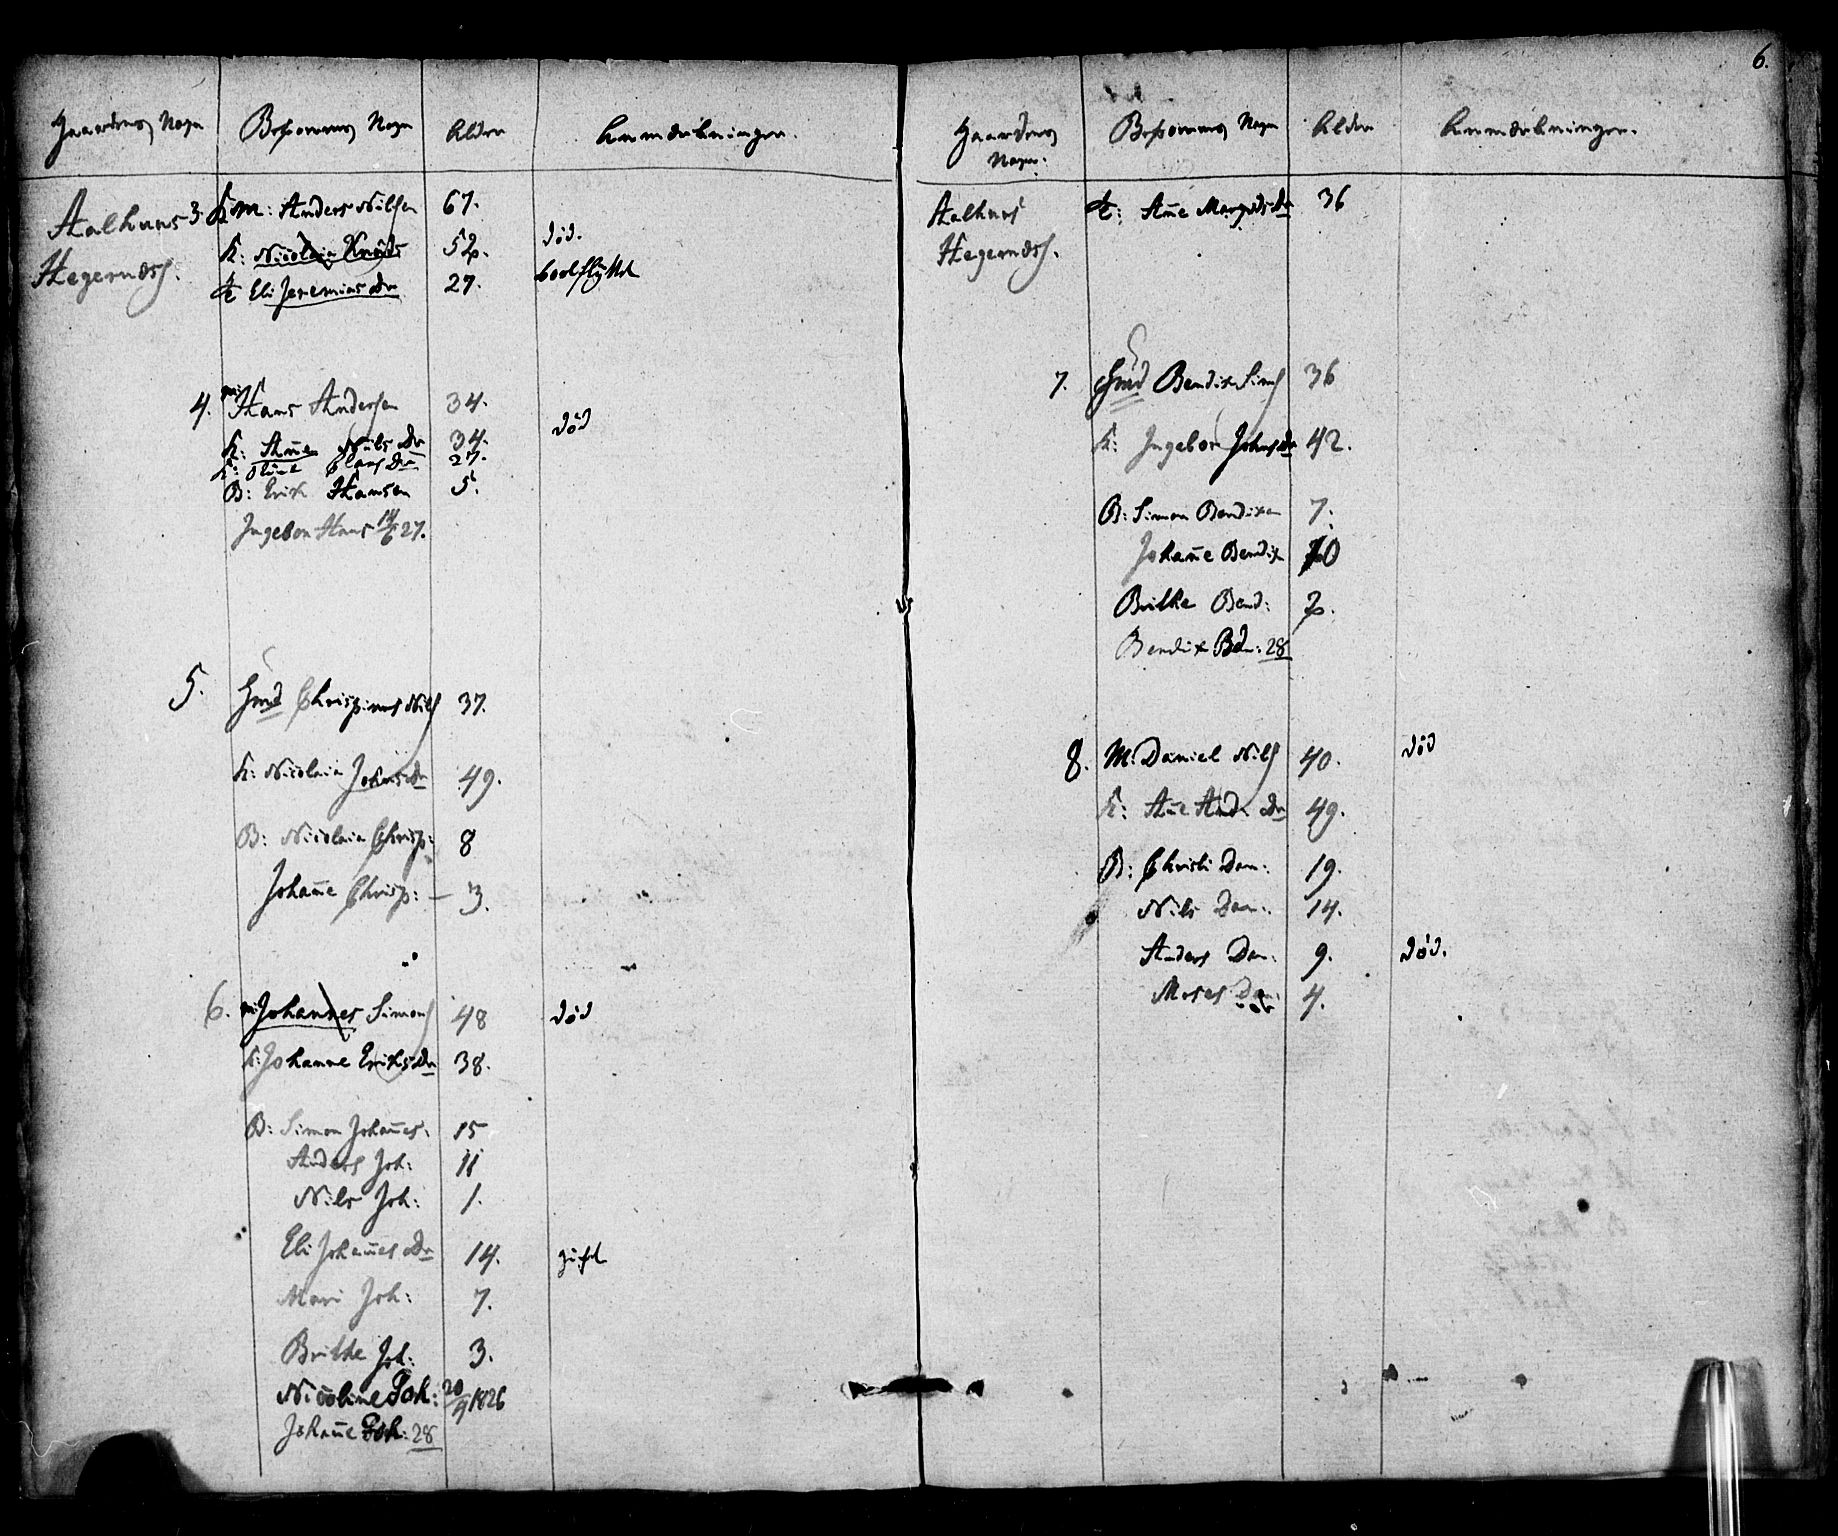 Gaardens Navn Beboernes Navn Alder Anmærkninger.
Aalhuus 3. K m: Anders Nilsen 67.
K: Nicolaia Knuds 52. död.
Hegernæss. T: Eli Jeremias Dr 27. bortflyttet
4. m: Hans Andersen 34.
K: Anne Nils Dr 34. död
K: Oline Claus Dr 27.
B: Erik Hansen 5.
Ingebor Hans 14/6 27.
5. Gmd Chrispinus Nils 37.
K: Nicolaia Johns Dr 49.
B: Nicolaia Chrisp: 8
Johanne Chrisp: – 3.
6. m: Johannes Simons 48 död
K: Johanne Eriks Dr 38.
B: Simon Johannes: 15
Anders Joh: 11
Nils Joh: 1.
Eli Johannes Dr 14. gift
Mari Joh: 7.
Brithe Joh: 3.
Nicoline Joh: 20/4 1826
Johanne Joh: 28
6.
Gaardens Navn. Beboernes Navn Alder Anmærkninger.
Aalhuus T: Anne Dr 36
Hegernæss.
7. Gmd Bendix Sims 36
K: Ingebor Johns Dr 42.
B: Simon Bendixen 7.
Johanne Bendix 10
Brithe Bend: 2.
Bendix Bd: 28
8. M: Daniel Nils 40. död
K: Anne And: Dr 49.
B: Christi Dan: 19.
Nils Dan: 14.
Anders Dan: 9. död.
Moses Dan: 4.